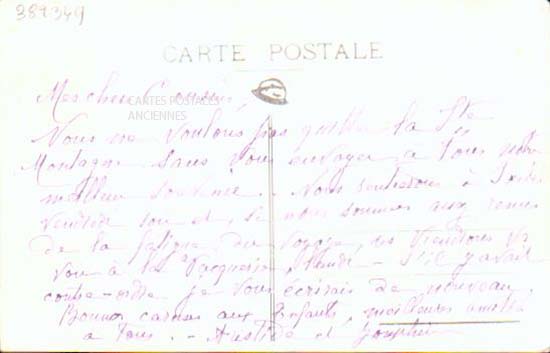 389349
CARTE POSTALE
CARTES POSTALES
ANCIENNES
Mes chers Cousins,
Nous ne voulons pas quitter la Ste
Montagne sans vous envoyer à tous notre
meilleur souvenir. Nous rentrerons à
vendredi soir et, si nous sommes aux
de la fatigue du voyage, viendrons
à la - S'il y avait
contre-ordre je vous écrirais de nouveau.
Bonnes caresses aux Enfants, meilleures amitiés
à tous. - Aristide et Joséphine